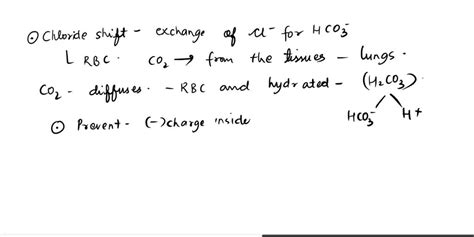 ⊙ Chloride shift - exchange of Cl⁻ for HCO₃⁻
L RBC. CO₂ → from the tissues - lungs.
CO₂ - diffuses. - RBC and hydrated - (H₂CO₃).
HCO₃⁻ H+
⊙ Prevent - (-)charge inside